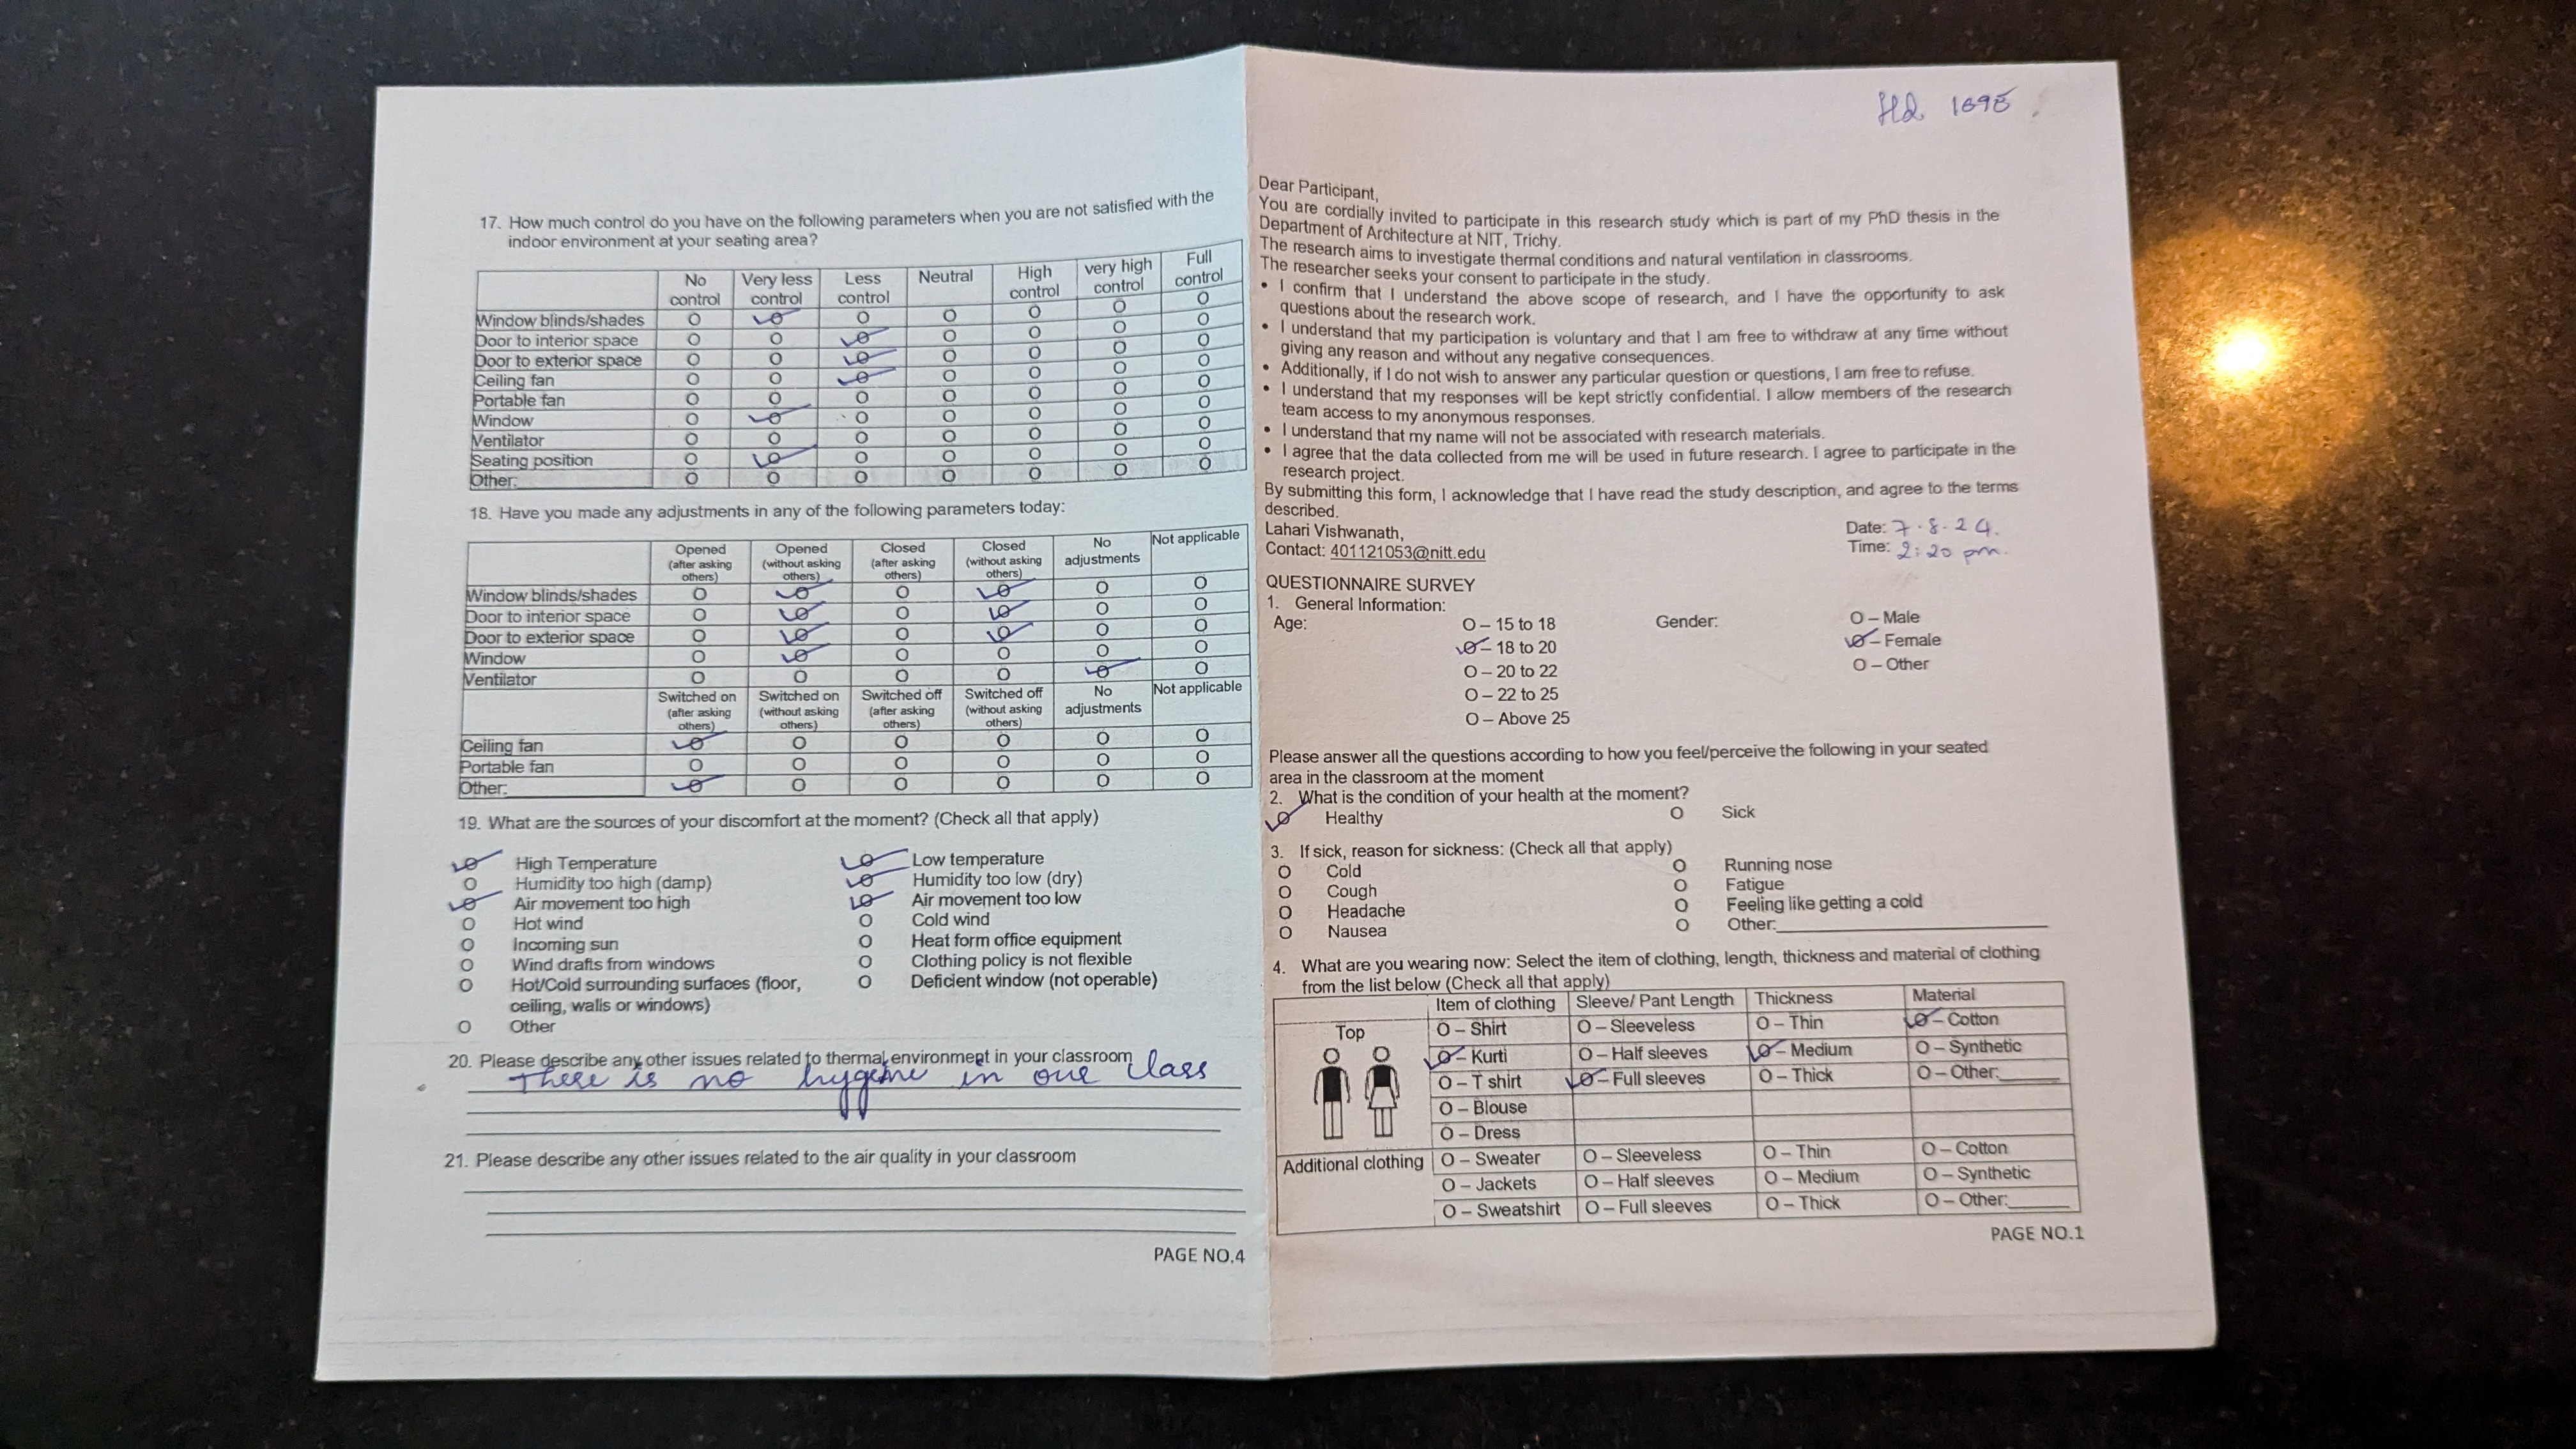 17. How much control do you have on the following parameters when you are not satisfied with the
indoor environment at your seating area?
No control Very less control Less control Neutral High control very high control Full control
Window blinds/shades O O O O O O O
Door to interior space O O O O O O O
Door to exterior space O O O O O O O
Ceiling fan O O O O O O O
Portable fan O O O O O O O
Window O O O O O O O
Ventilator O O O O O O O
Seating position O O O O O O O
Other: O O O O O O O
18. Have you made any adjustments in any of the following parameters today:
Opened (after asking others) Opened (without asking others) Closed (after asking others) Closed (without asking others) No adjustments Not applicable
Window blinds/shades O O O O O O
Door to interior space O O O O O O
Door to exterior space O O O O O O
Window O O O O O O
Ventilator O O O O O O
Switched on (after asking others) Switched on (without asking others) Switched off (after asking others) Switched off (without asking others) No adjustments Not applicable
Ceiling fan O O O O O O
Portable fan O O O O O O
Other: O O O O O O
19. What are the sources of your discomfort at the moment? (Check all that apply)
O High Temperature O Low temperature
O Humidity too high (damp) O Humidity too low (dry)
O Air movement too high O Air movement too low
O Hot wind O Cold wind
O Incoming sun O Heat form office equipment
O Wind drafts from windows O Clothing policy is not flexible
O Hot/Cold surrounding surfaces (floor, O Deficient window (not operable)
ceiling, walls or windows)
O Other
20. Please describe any other issues related to thermal environment in your classroom
There is no hygiene in our class
21. Please describe any other issues related to the air quality in your classroom
PAGE NO.4
1698
Dear Participant,
You are cordially invited to participate in this research study which is part of my PhD thesis in the
Department of Architecture at NIT, Trichy.
The research aims to investigate thermal conditions and natural ventilation in classrooms.
The researcher seeks your consent to participate in the study.
• I confirm that I understand the above scope of research, and I have the opportunity to ask
questions about the research work.
• I understand that my participation is voluntary and that I am free to withdraw at any time without
giving any reason and without any negative consequences.
• Additionally, if I do not wish to answer any particular question or questions, I am free to refuse.
• I understand that my responses will be kept strictly confidential. I allow members of the research
team access to my anonymous responses.
• I understand that my name will not be associated with research materials.
• I agree that the data collected from me will be used in future research. I agree to participate in the
research project.
By submitting this form, I acknowledge that I have read the study description, and agree to the terms
described.
Lahari Vishwanath,
Contact: 401121053@nitt.edu
Date: 7.8.24.
Time: 2:20 pm.
QUESTIONNAIRE SURVEY
1. General Information:
Age: O – 15 to 18 Gender: O – Male
O – 18 to 20 O – Female
O – 20 to 22 O – Other
O – 22 to 25
O – Above 25
Please answer all the questions according to how you feel/perceive the following in your seated
area in the classroom at the moment
2. What is the condition of your health at the moment?
O Healthy O Sick
3. If sick, reason for sickness: (Check all that apply)
O Cold O Running nose
O Cough O Fatigue
O Headache O Feeling like getting a cold
O Nausea O Other:
4. What are you wearing now: Select the item of clothing, length, thickness and material of clothing
from the list below (Check all that apply)
Item of clothing Sleeve/ Pant Length Thickness Material
Top O – Shirt O – Sleeveless O – Thin O – Cotton
O – Kurti O – Half sleeves O – Medium O – Synthetic
O – T shirt O – Full sleeves O – Thick O – Other:
O – Blouse
O – Dress
Additional clothing O – Sweater O – Sleeveless O – Thin O – Cotton
O – Jackets O – Half sleeves O – Medium O – Synthetic
O – Sweatshirt O – Full sleeves O – Thick O – Other:
PAGE NO.1